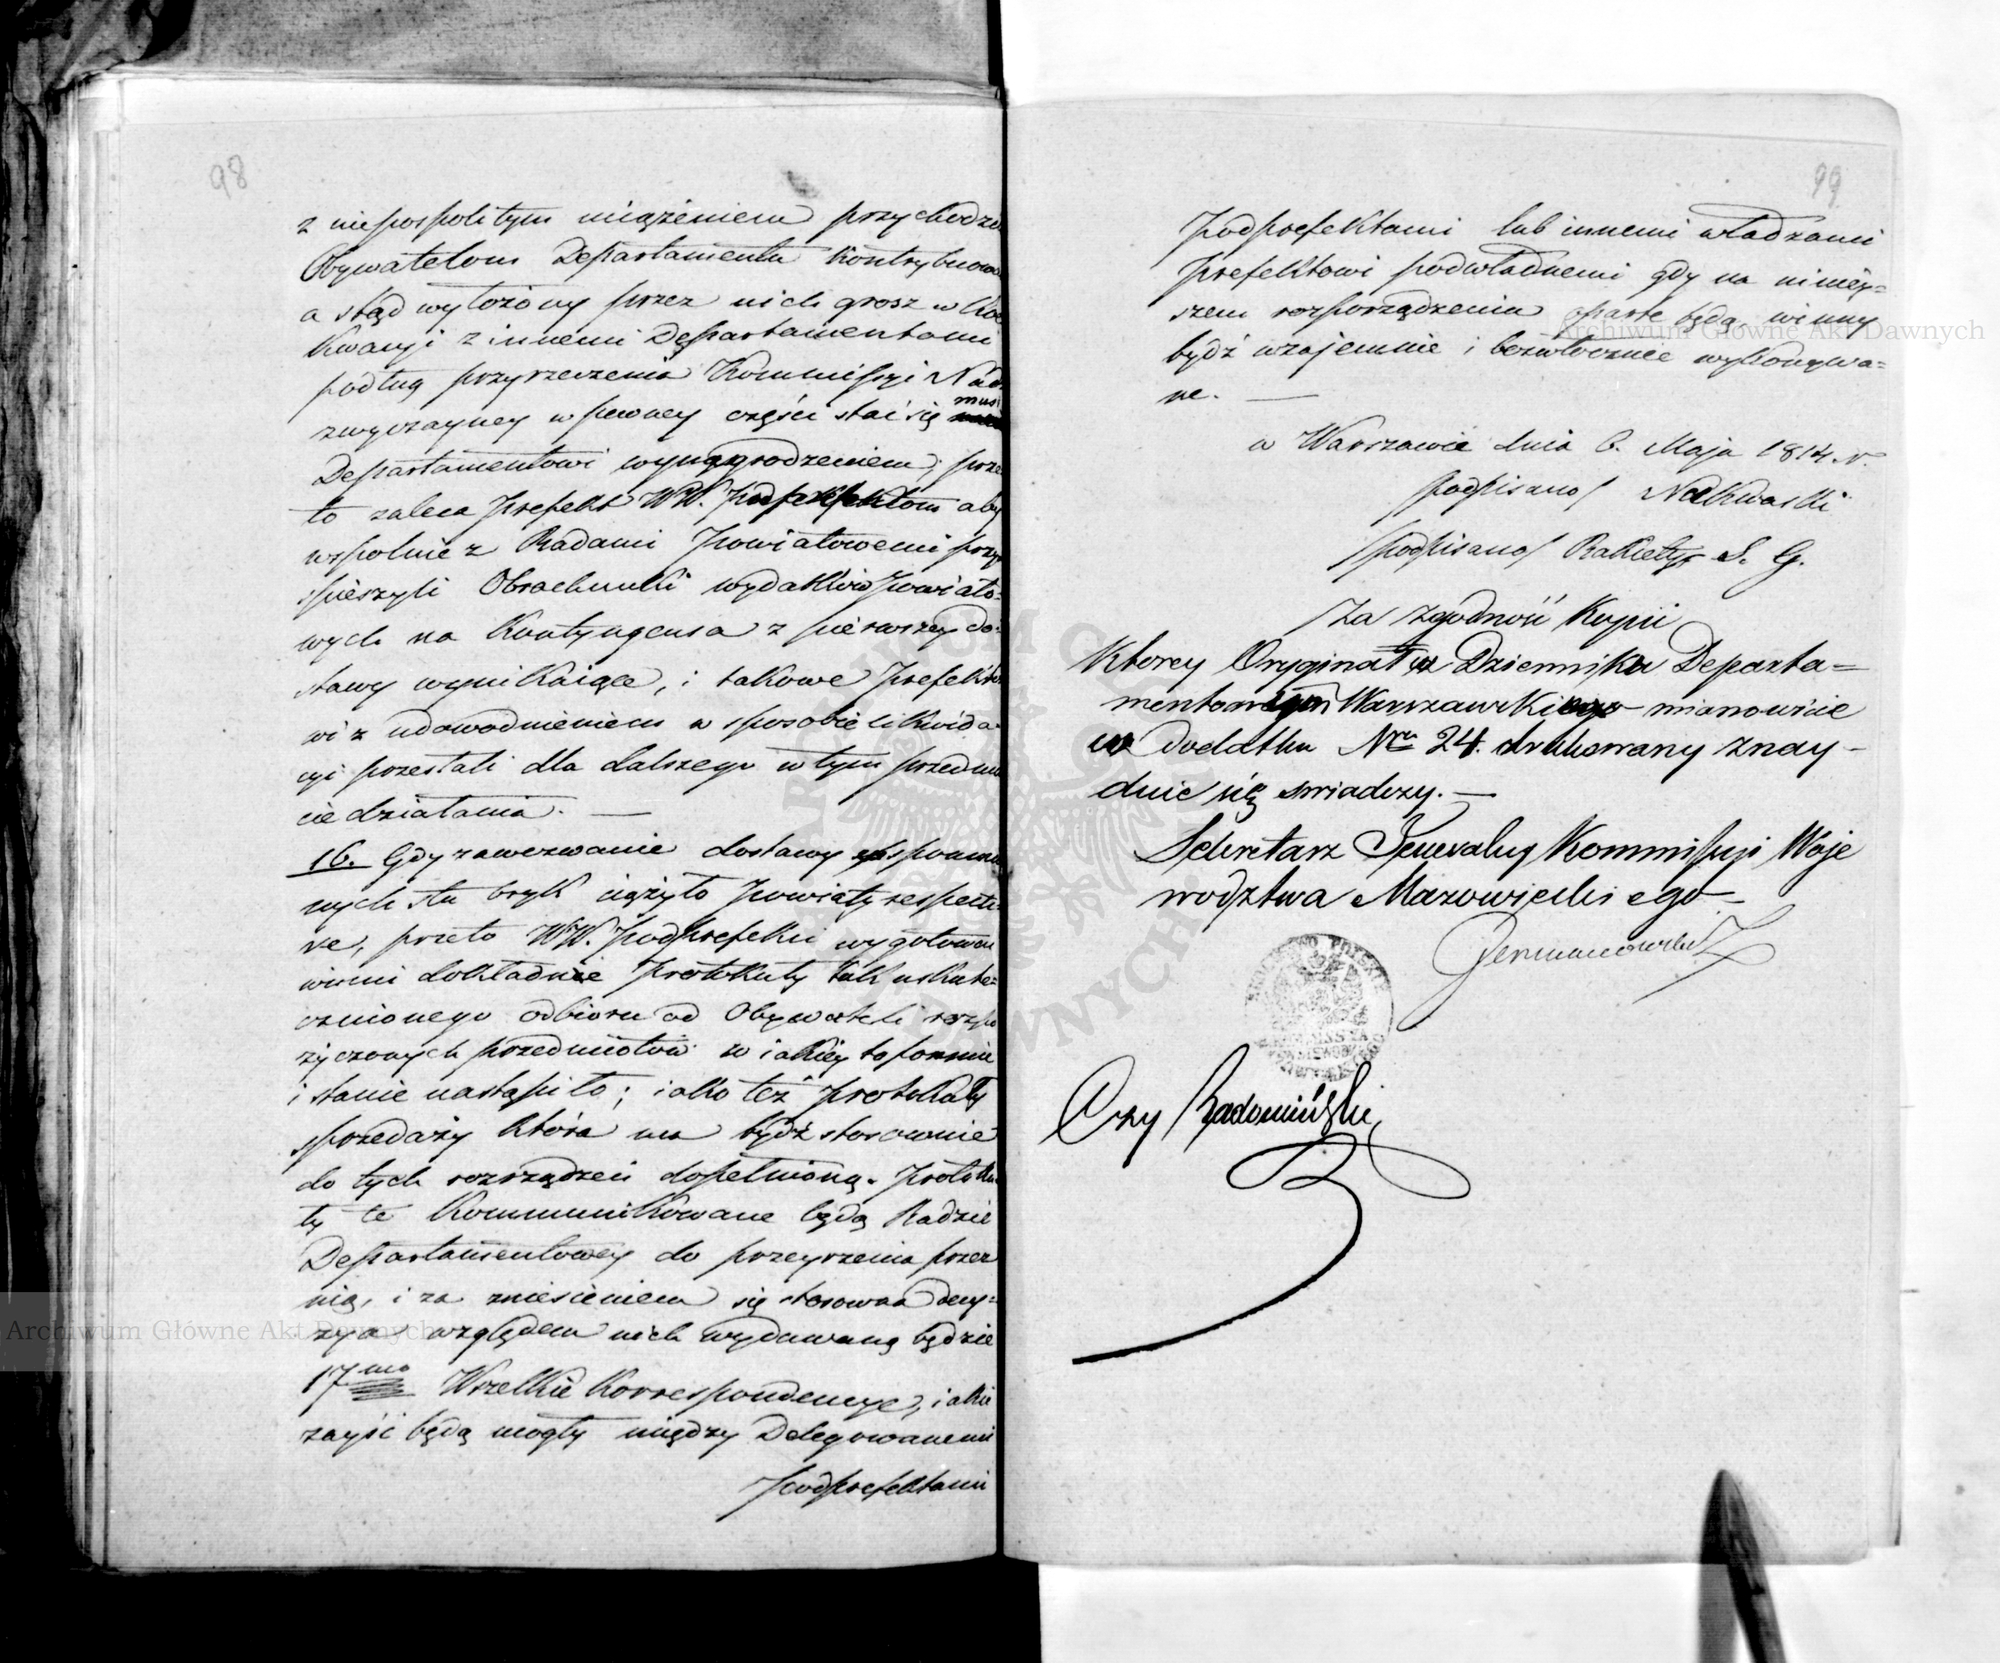 98
z niepospolitym uciążeniem przychodzi
Obywatelom Departamentu Kontrybuowa
a stąd wyłożony przez nich grosz w
z innemi Departamentami
podług przyrzeczenia Kommissyi Nad
zwyczayney w pewney części stać się musi
Departamentowi wynagrodzeniem; prze
to zaleca Prefekt WW. Podprefektom aby
wspolnie z Radami Powiatowemi przy
spieszyli Obrachunki wydatków Powiato=
wych na Kontyngensa z pierwszey do=
stawy wynikaiące, i takowe Prefekto
wi z udowodnieniem w sposobie likwida
cyi przesłali dla dalszego w tym przedmio
cie działania. —
16. Gdy zawezwanie dostawy wspomnio
nych stu bryk ciążyło Powiaty respecti
ve, przeto WW. Podprefekci wygotować
winni dokładnie Protokuły tak uskute=
cznionego odbioru od Obywateli rozpo
życzonych przedmiotów w iakiey to formie
i stanie nastąpiło; iako też Protokuły
sprzedaży która ma bydź stosownie
do tych rozrządzeń dopełnioną. Protoku
ły te Kommunikowane będą Radzie
Departamentowey do przeyrzenia przez
nią, i za zniesieniem się stosowna decy=
zya względem nich wydawaną będzie
17mo Wszelkie Korrespondencye, iakie
zayść będą mogły między Delegowanemi
Podprefektami
99
Podprefektami lub innemi władzami
Prefektowi podwładnemi gdy na ninięy=
szem rozporządzeniu oparte będą, winny
bydź wzajemnie i bezwłocznie wykonywa=
ne. —
w Warszawie dnia 6. Maja 1814. r.
podpisano/ Nakwaski
/podpisano/ Rakiety S. G.
Za zgodność Kopii
Ktorey Oryginał w Dzienniku Departa=
mentowym Warszawskiego mianowicie
w Dodatku Nru 24. drukowany znay-
duie się swiadczy. —
Sekretarz Jeneralny Kommissyi Woje
wodztwa Mazowieckiego
Germanowski
Czy Radomiński
Archiwum Główne Akt Dawnych
Archiwum Główne Akt Dawnych